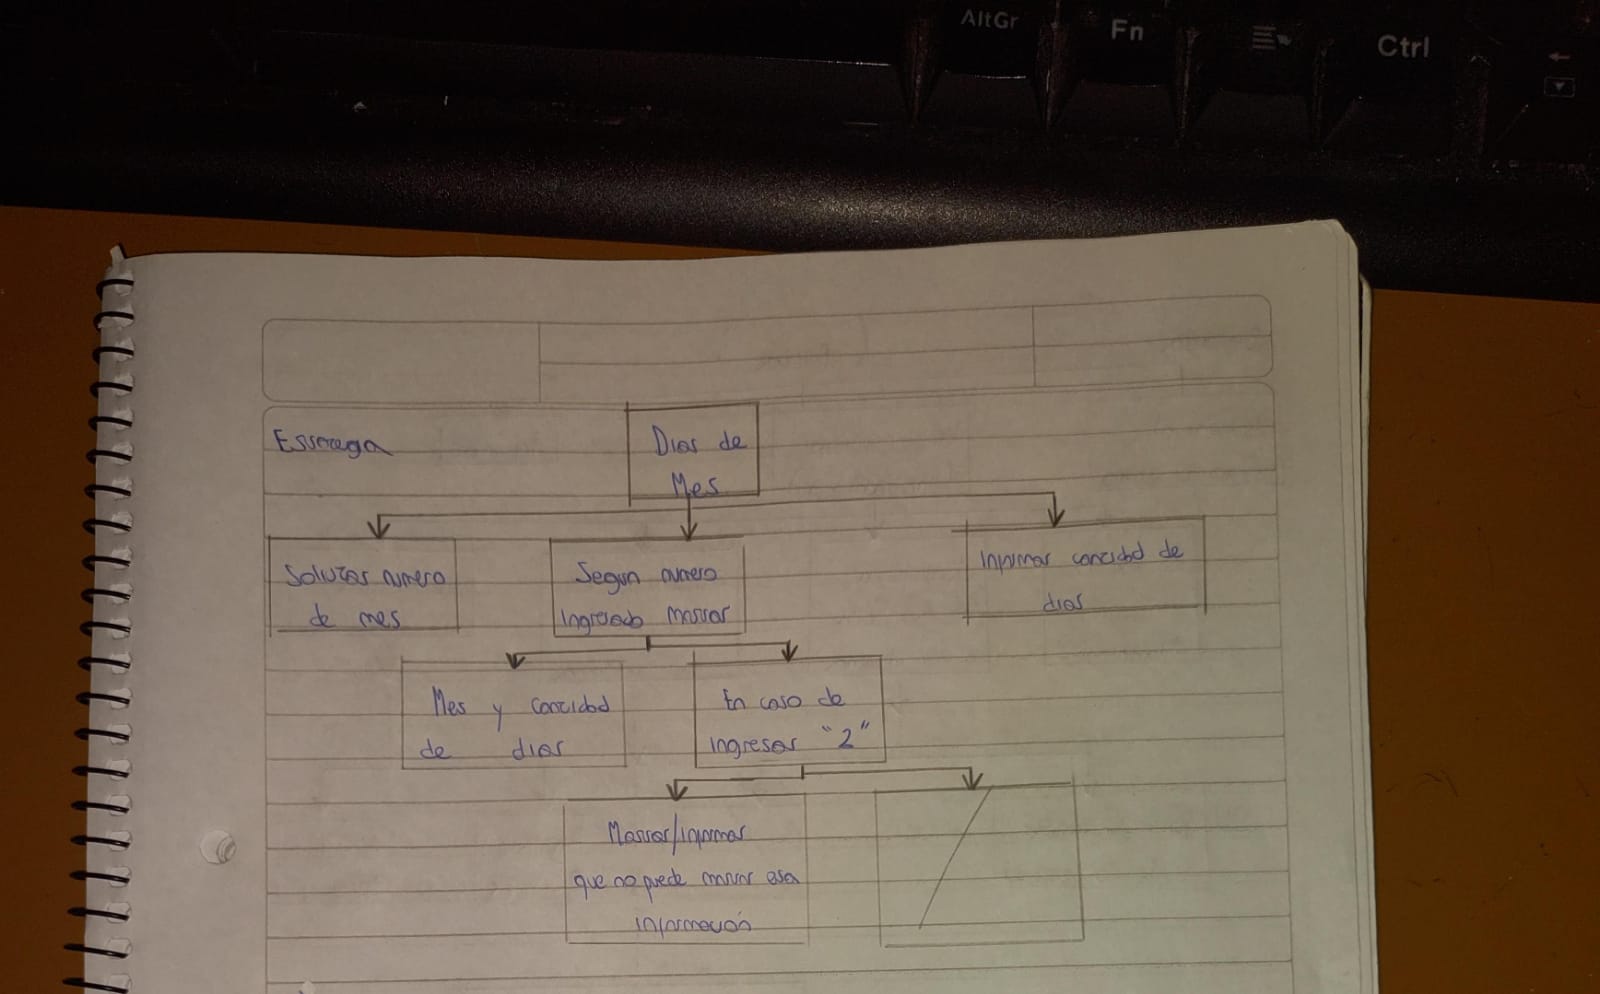 AltGr
Fn
Ctrl
Estrategia
Dias de
Mes
Solicitar numero
de mes
Segun numero
ingresado mostrar
Informar cantidad de
dias
Mes y cantidad
de dias
En caso de
ingresar "2"
Mostrar/informar
que no puede mostrar esa
información